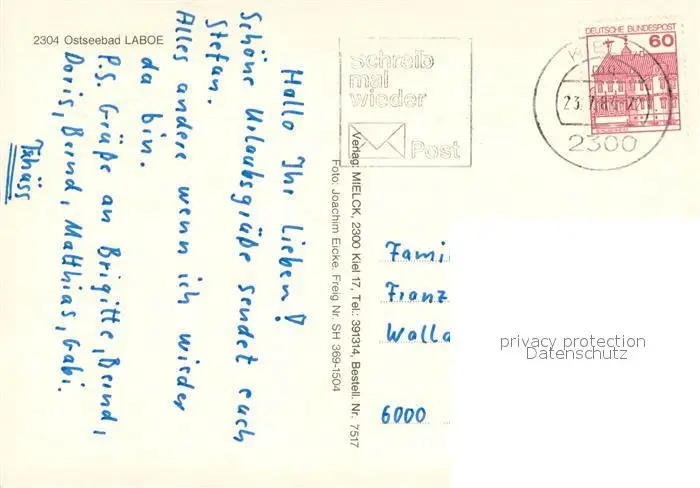 2304 Ostseebad LABOE
Hallo Ihr Lieben!
Schöne Urlaubsgrüße sendet euch
Stefan.
Alles andere wenn ich wieder
da bin.
P.S. Grüße an Brigitte, Bernd,
Doris, Bernd, Matthias, Gabi.
Tschüss
Verlag: MIELCK, 2300 Kiel 17, Tel.: 391314, Bestell. Nr. 7517
Foto: Joachim Eicke, Freig Nr. SH 369-1504
schreib
mal
wieder
Post
DEUTSCHE BUNDESPOST
60
KIEL
23.7.8
2300
Fami
Franz
Walla
6000
privacy protection
Datenschutz